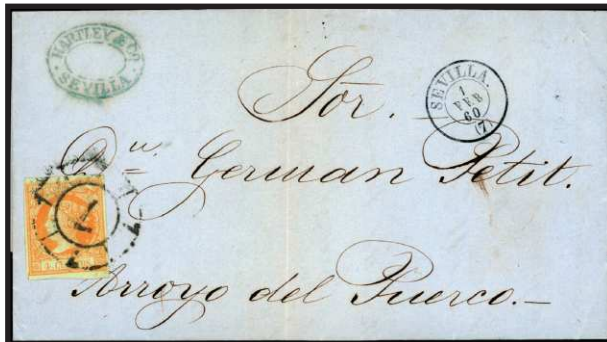 MARTLEY & CO
SEVILLA
SEVILLA.
1
FEB
60
(7)
Sor.
Dn. German Petit.
Arroyo del Puerco.=
7